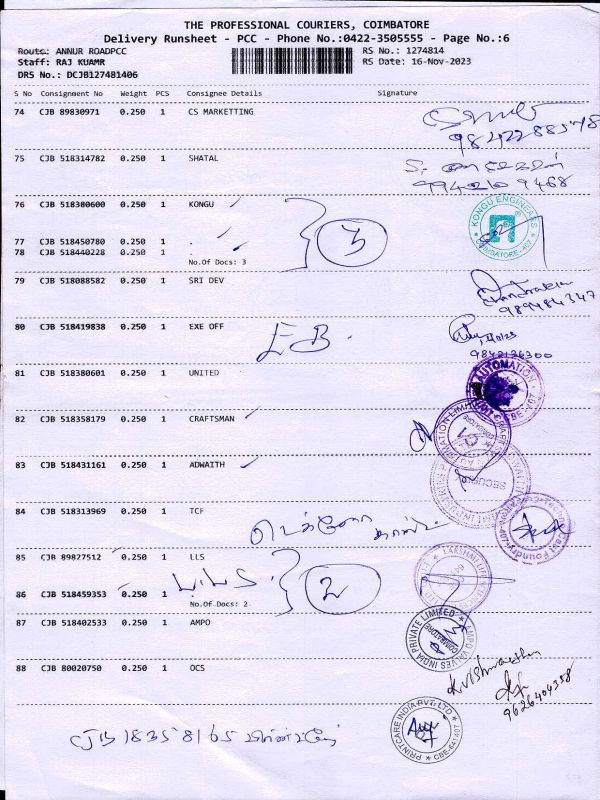 THE PROFESSIONAL COURIERS, COIMBATORE
Delivery Runsheet - PCC - Phone No.:0422-3505555 - Page No.:6
Route: ANNUR ROADPCC
RS No.: 1274814
Staff: RAJ KUAMR
RS Date: 16-Nov-2023
DRS No.: DCJB127481406
S No Consignment No Weight PCS Consignee Details Signature
74 CJB 89830971 0.250 1 CS MARKETTING
75 CJB 518314782 0.250 1 SHATAL
9942109468
76 CJB 518380600 0.250 1 KONGU
KONGU ENGINEERS
3
77 CJB 518450780 0.250 1 .
78 CJB 518440228 0.250 1 .
No.Of Docs: 3
79 CJB 518088582 0.250 1 SRI DEV
80 CJB 518419838 0.250 1 EXE OFF
EB
9842136300
81 CJB 518380601 0.250 1 UNITED
AUTOMATION
82 CJB 518358179 0.250 1 CRAFTSMAN
83 CJB 518431161 0.250 1 ADWAITH
84 CJB 518313969 0.250 1 TCF
85 CJB 89827512 0.250 1 LLS
L.L.S.
2
86 CJB 518459353 0.250 1 .
No.Of Docs: 2
87 CJB 518402533 0.250 1 AMPO
AMPO VALVES INDIA PRIVATE LIMITED
COIMBATORE
88 CJB 80020750 0.250 1 OCS
9626404358
PRINTCARE INDIA PVT. LTD
CBE-641407